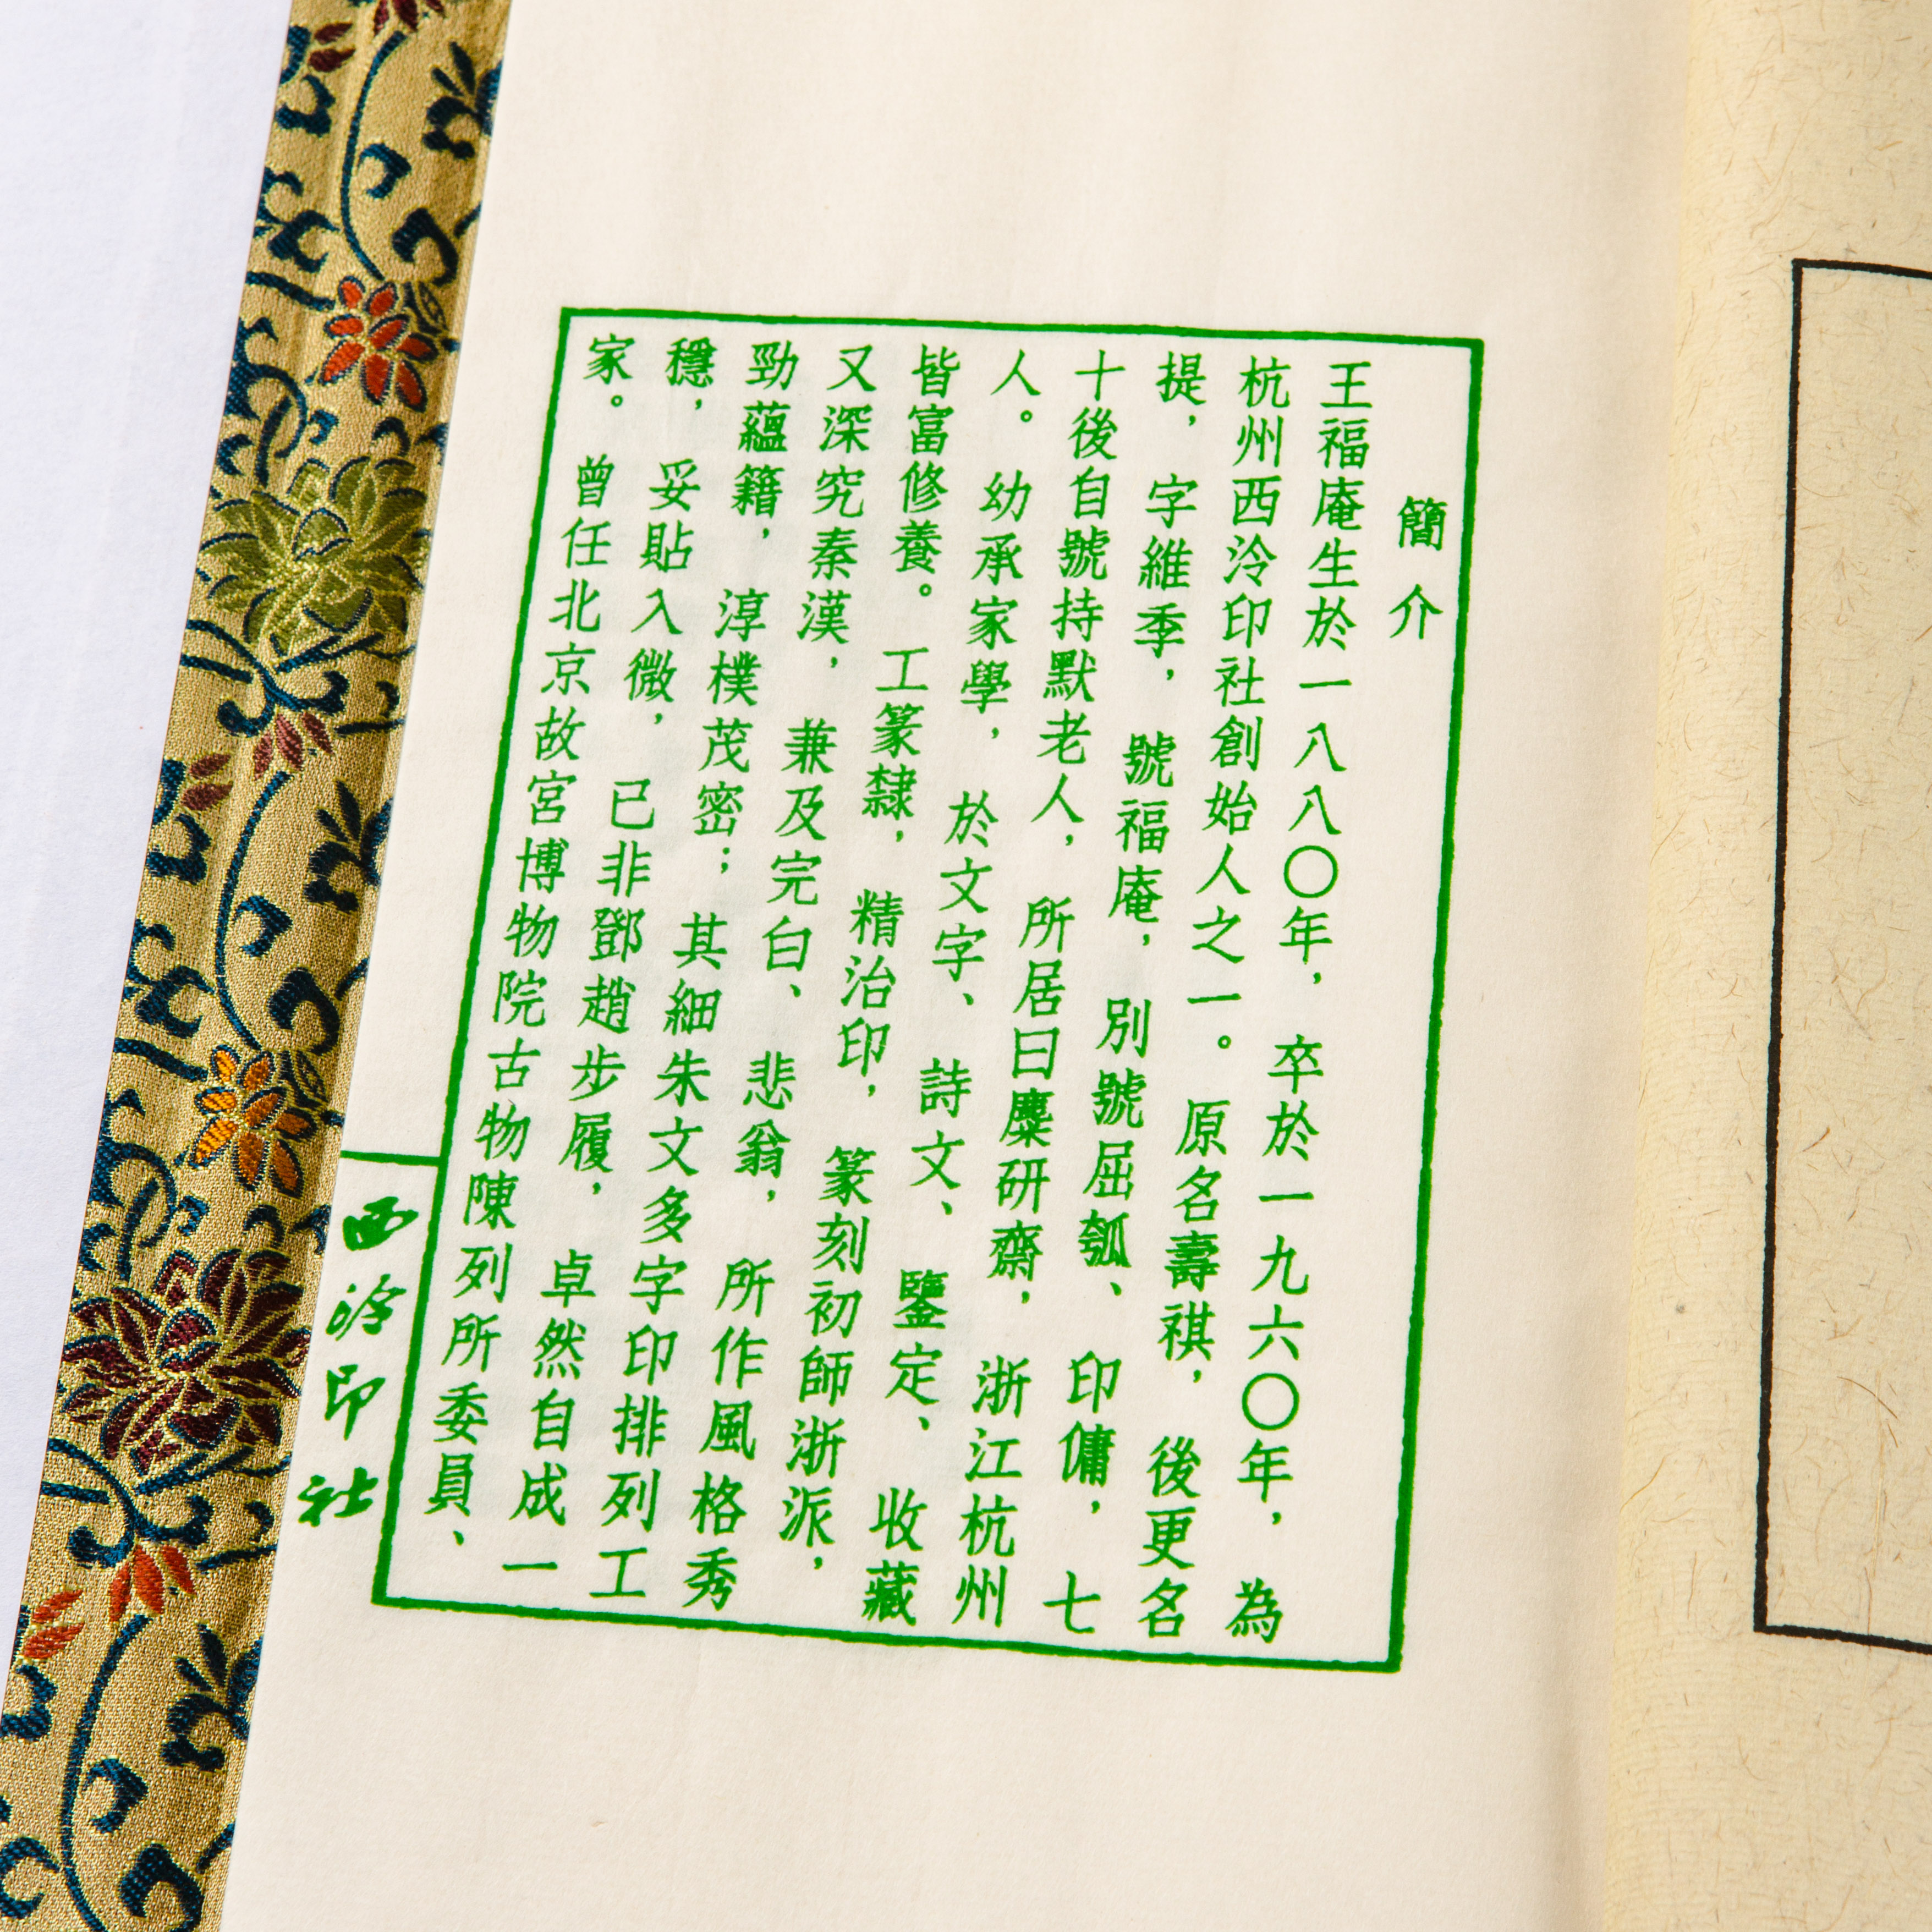 簡介
王福庵生於一八八〇年，卒於一九六〇年，為
杭州西泠印社創始人之一。原名壽祺，後更名
提，字維季，號福庵，別號屈瓠、印傭，七
十後自號持默老人，所居曰麋研齋，浙江杭州
人。幼承家學，於文字、詩文、鑒定、收藏
皆富修養。工篆隸，精治印，篆刻初師浙派，
又深究秦漢，兼及完白、悲翁，所作風格秀
勁蘊籍，淳樸茂密；其細朱文多字印排列工
穩，妥貼入微，已非鄧趙步履，卓然自成一
家。曾任北京故宮博物院古物陳列所委員、
西泠印社